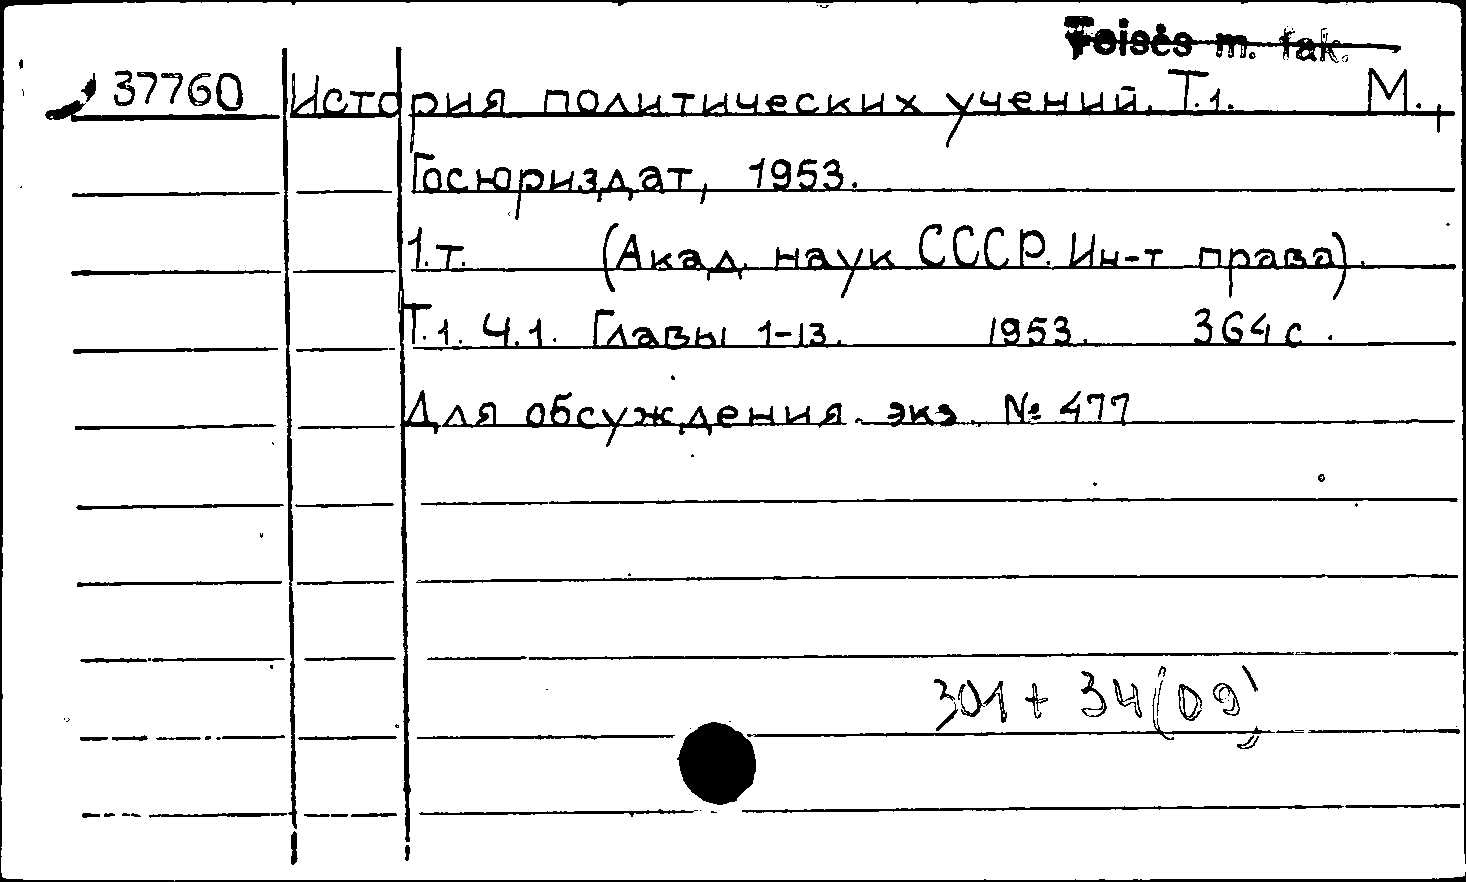 Teisės m. fak.
37760 История политических учений. Т.1. М.,
Госюриздат, 1953.
1.т. (Акад. наук СССР. Ин-т права).
Т.1. Ч.1. Главы 1-13. 1953. 364 с.
Для обсуждения. экз. № 477
301 + 34(09)